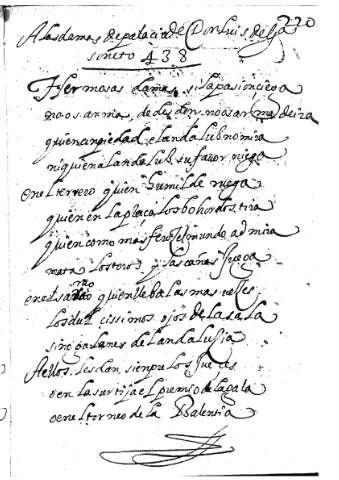 220
A las damas de palacio de Don Luis de Ga
soneto 438
Hermosas damas, si la pasion ciega
no os arma de desden no os arma de ira
quien con piedad el andaluz no mira
ni quien al andaluz su favor niega
en el terrero quien humilde ruega
quien en la plaça los bohordos tira
quien como mas feroz el mundo admira
mata los toros y las cañas juega
en el sarao quien lleba las mas veces
los dulcissimos ojos de la sala
sino galanes de landaluzia
A ellos les dan sienpre los jueces
o en la sortija el premio de la gala
o en el torneo de la Balentia